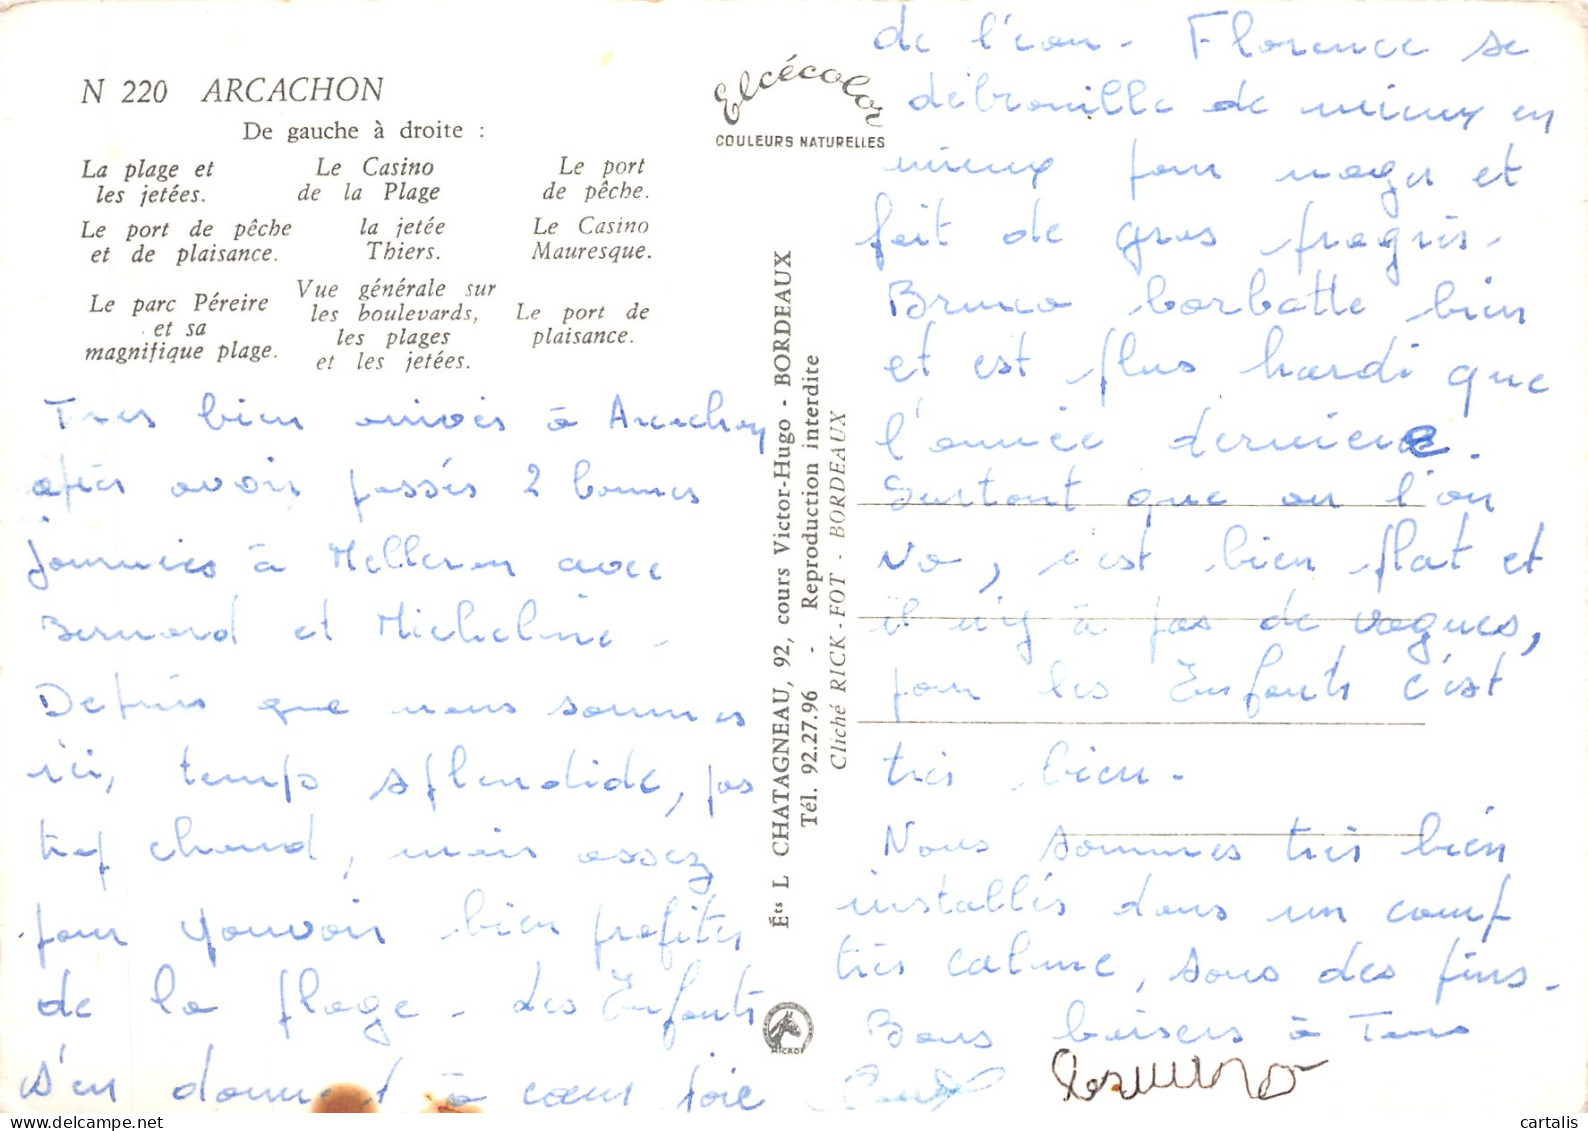 N 220 ARCACHON
De gauche à droite :
La plage et
les jetées.
Le Casino
de la Plage
Le port
de pêche.
Le port de pêche
et de plaisance.
la jetée
Thiers.
Le Casino
Mauresque.
Le parc Péreire
et sa
magnifique plage.
Vue générale sur
les boulevards,
les plages
et les jetées.
Le port de
plaisance.
Tres bien arrivés à Arcachon
après avoir passés 2 bonnes
journées à Melleran avec
Bernard et Micheline -
Depuis que nous sommes
ici, temps splendide, pas
trop chaud, mais assez
pour pouvoir bien profiter
de la plage - des Enfants
s'en donnent à cœur joie
Elcécolor
COULEURS NATURELLES
Éts L CHATAGNEAU, 92, cours Victor-Hugo - BORDEAUX
Tél. 92.27.96 - Reproduction interdite
Cliché RICK-FOT - BORDEAUX
MICRO
de l'eau - Florence se
débrouille de mieux en
mieux pour nager et
fait de gros progrès.
Bruno barbotte bien
et est plus hardi que
l'année derniere.
Surtout que ou l'on
va, c'est bien plat et
il n'y à pas de vagues,
pour les Enfants c'est
très bien -
Nous sommes très bien
installés dans un camp
très calme, sous des pins.
Bons baisers à Tous